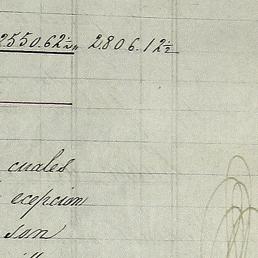 2550.62½,, 2.806.12½
cuales
ecepcion
son